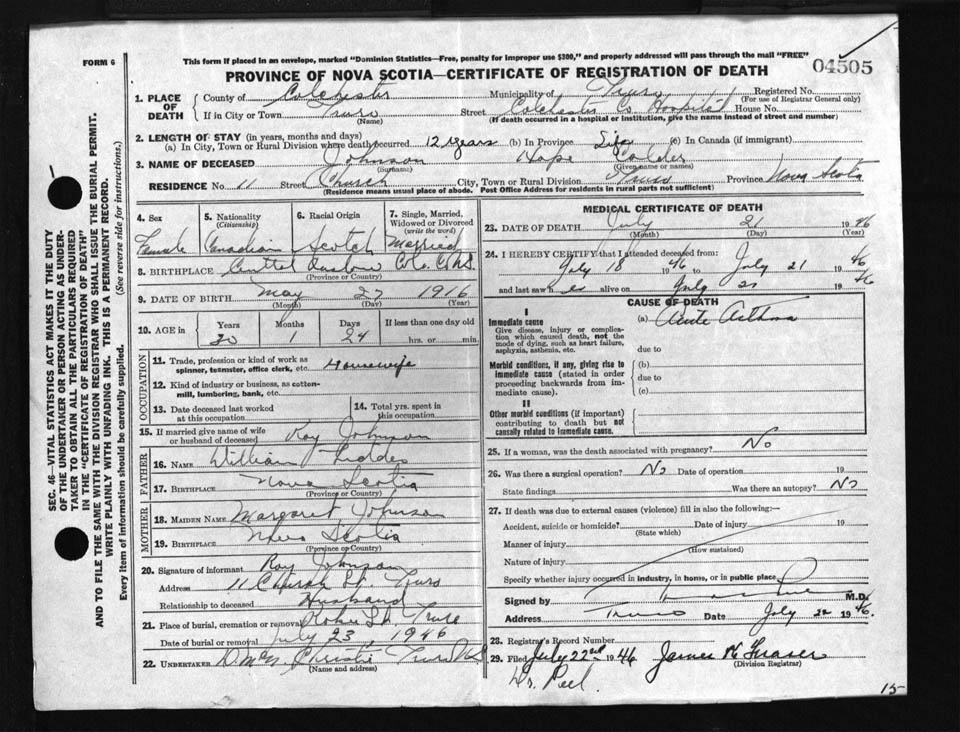 FORM 6
This form if placed in an envelope, marked "Dominion Statistics—Free, penalty for improper use $300," and properly addressed will pass through the mail "FREE"
PROVINCE OF NOVA SCOTIA—CERTIFICATE OF REGISTRATION OF DEATH
04505
1. PLACE OF DEATH
County of Colchester Municipality of Truro Registered No.
(For use of Registrar General only)
If in City or Town Truro Street Colchester Co Hospital House No.
(Name) (If death occurred in a hospital or institution, give the name instead of street and number)
2. LENGTH OF STAY (in years, months and days)
(a) In City, Town or Rural Division where death occurred 12 years (b) In Province Life (c) In Canada (if immigrant)
3. NAME OF DECEASED Johnson Hope Calder
(Surname) (Given name or names)
RESIDENCE No 11 Street Church City, Town or Rural Division Truro Province Nova Scotia
(Residence means usual place of abode. Post Office Address for residents in rural parts not sufficient)
4. Sex
Female
5. Nationality
(Citizenship)
Canadian
6. Racial Origin
Scotch
7. Single, Married, Widowed or Divorced
(write the word)
Married
8. BIRTHPLACE Central Onslow Col. Co. N.S.
(Province or Country)
9. DATE OF BIRTH May 27 1916
(Month) (Day) (Year)
10. AGE in
Years Months Days If less than one day old
30 1 24 hrs. or min.
OCCUPATION
11. Trade, profession or kind of work as spinner, teamster, office clerk, etc. Housewife
12. Kind of industry or business, as cotton-mill, lumbering, bank, etc.
13. Date deceased last worked at this occupation
14. Total yrs. spent in this occupation
15. If married give name of wife or husband of deceased Roy Johnson
FATHER
16. NAME William
17. BIRTHPLACE Nova Scotia
(Province or Country)
MOTHER
18. MAIDEN NAME Margaret Johnson
19. BIRTHPLACE Nova Scotia
(Province or Country)
20. Signature of informant Roy Johnson
Address 11 Church St. Truro
Relationship to deceased Husband
21. Place of burial, cremation or removal Truro
Date of burial or removal July 23, 1946
22. UNDERTAKER Christie Truro N.S.
(Name and address)
MEDICAL CERTIFICATE OF DEATH
23. DATE OF DEATH July 21 1946
(Month) (Day) (Year)
24. I HEREBY CERTIFY that I attended deceased from
July 18 1946 to July 21 1946
and last saw her alive on July 21 1946
CAUSE OF DEATH
I
Immediate cause
Give disease, injury or complication which caused death, not the mode of dying, such as heart failure, asphyxia, asthenia, etc.
(a) Acute Asthma
due to
Morbid conditions, if any, giving rise to immediate cause (stated in order proceeding backwards from immediate cause).
(b)
due to
(c)
II
Other morbid conditions (if important) contributing to death but not causally related to immediate cause.
25. If a woman, was the death associated with pregnancy? No
26. Was there a surgical operation? No Date of operation 19
State findings Was there an autopsy? No
27. If death was due to external causes (violence) fill in also the following:—
Accident, suicide or homicide? Date of injury 19
(State which)
Manner of injury
(How sustained)
Nature of injury
Specify whether injury occurred in industry, in home, or in public place
Signed by M.D.
Address Truro Date July 22 1946.
28. Registrar's Record Number
29. Filed July 22nd 1946 James W Fraser
(Division Registrar)
Dr. Peel.
15
SEC. 46—VITAL STATISTICS ACT MAKES IT THE DUTY
OF THE UNDERTAKER OR PERSON ACTING AS UNDER-
TAKER TO OBTAIN ALL THE PARTICULARS REQUIRED
IN THE "CERTIFICATE OF REGISTRATION OF DEATH"
AND TO FILE THE SAME WITH THE DIVISION REGISTRAR WHO SHALL ISSUE THE BURIAL PERMIT.
WRITE PLAINLY WITH UNFADING INK. THIS IS A PERMANENT RECORD.
Every item of information should be carefully supplied. (See reverse side for instructions.)